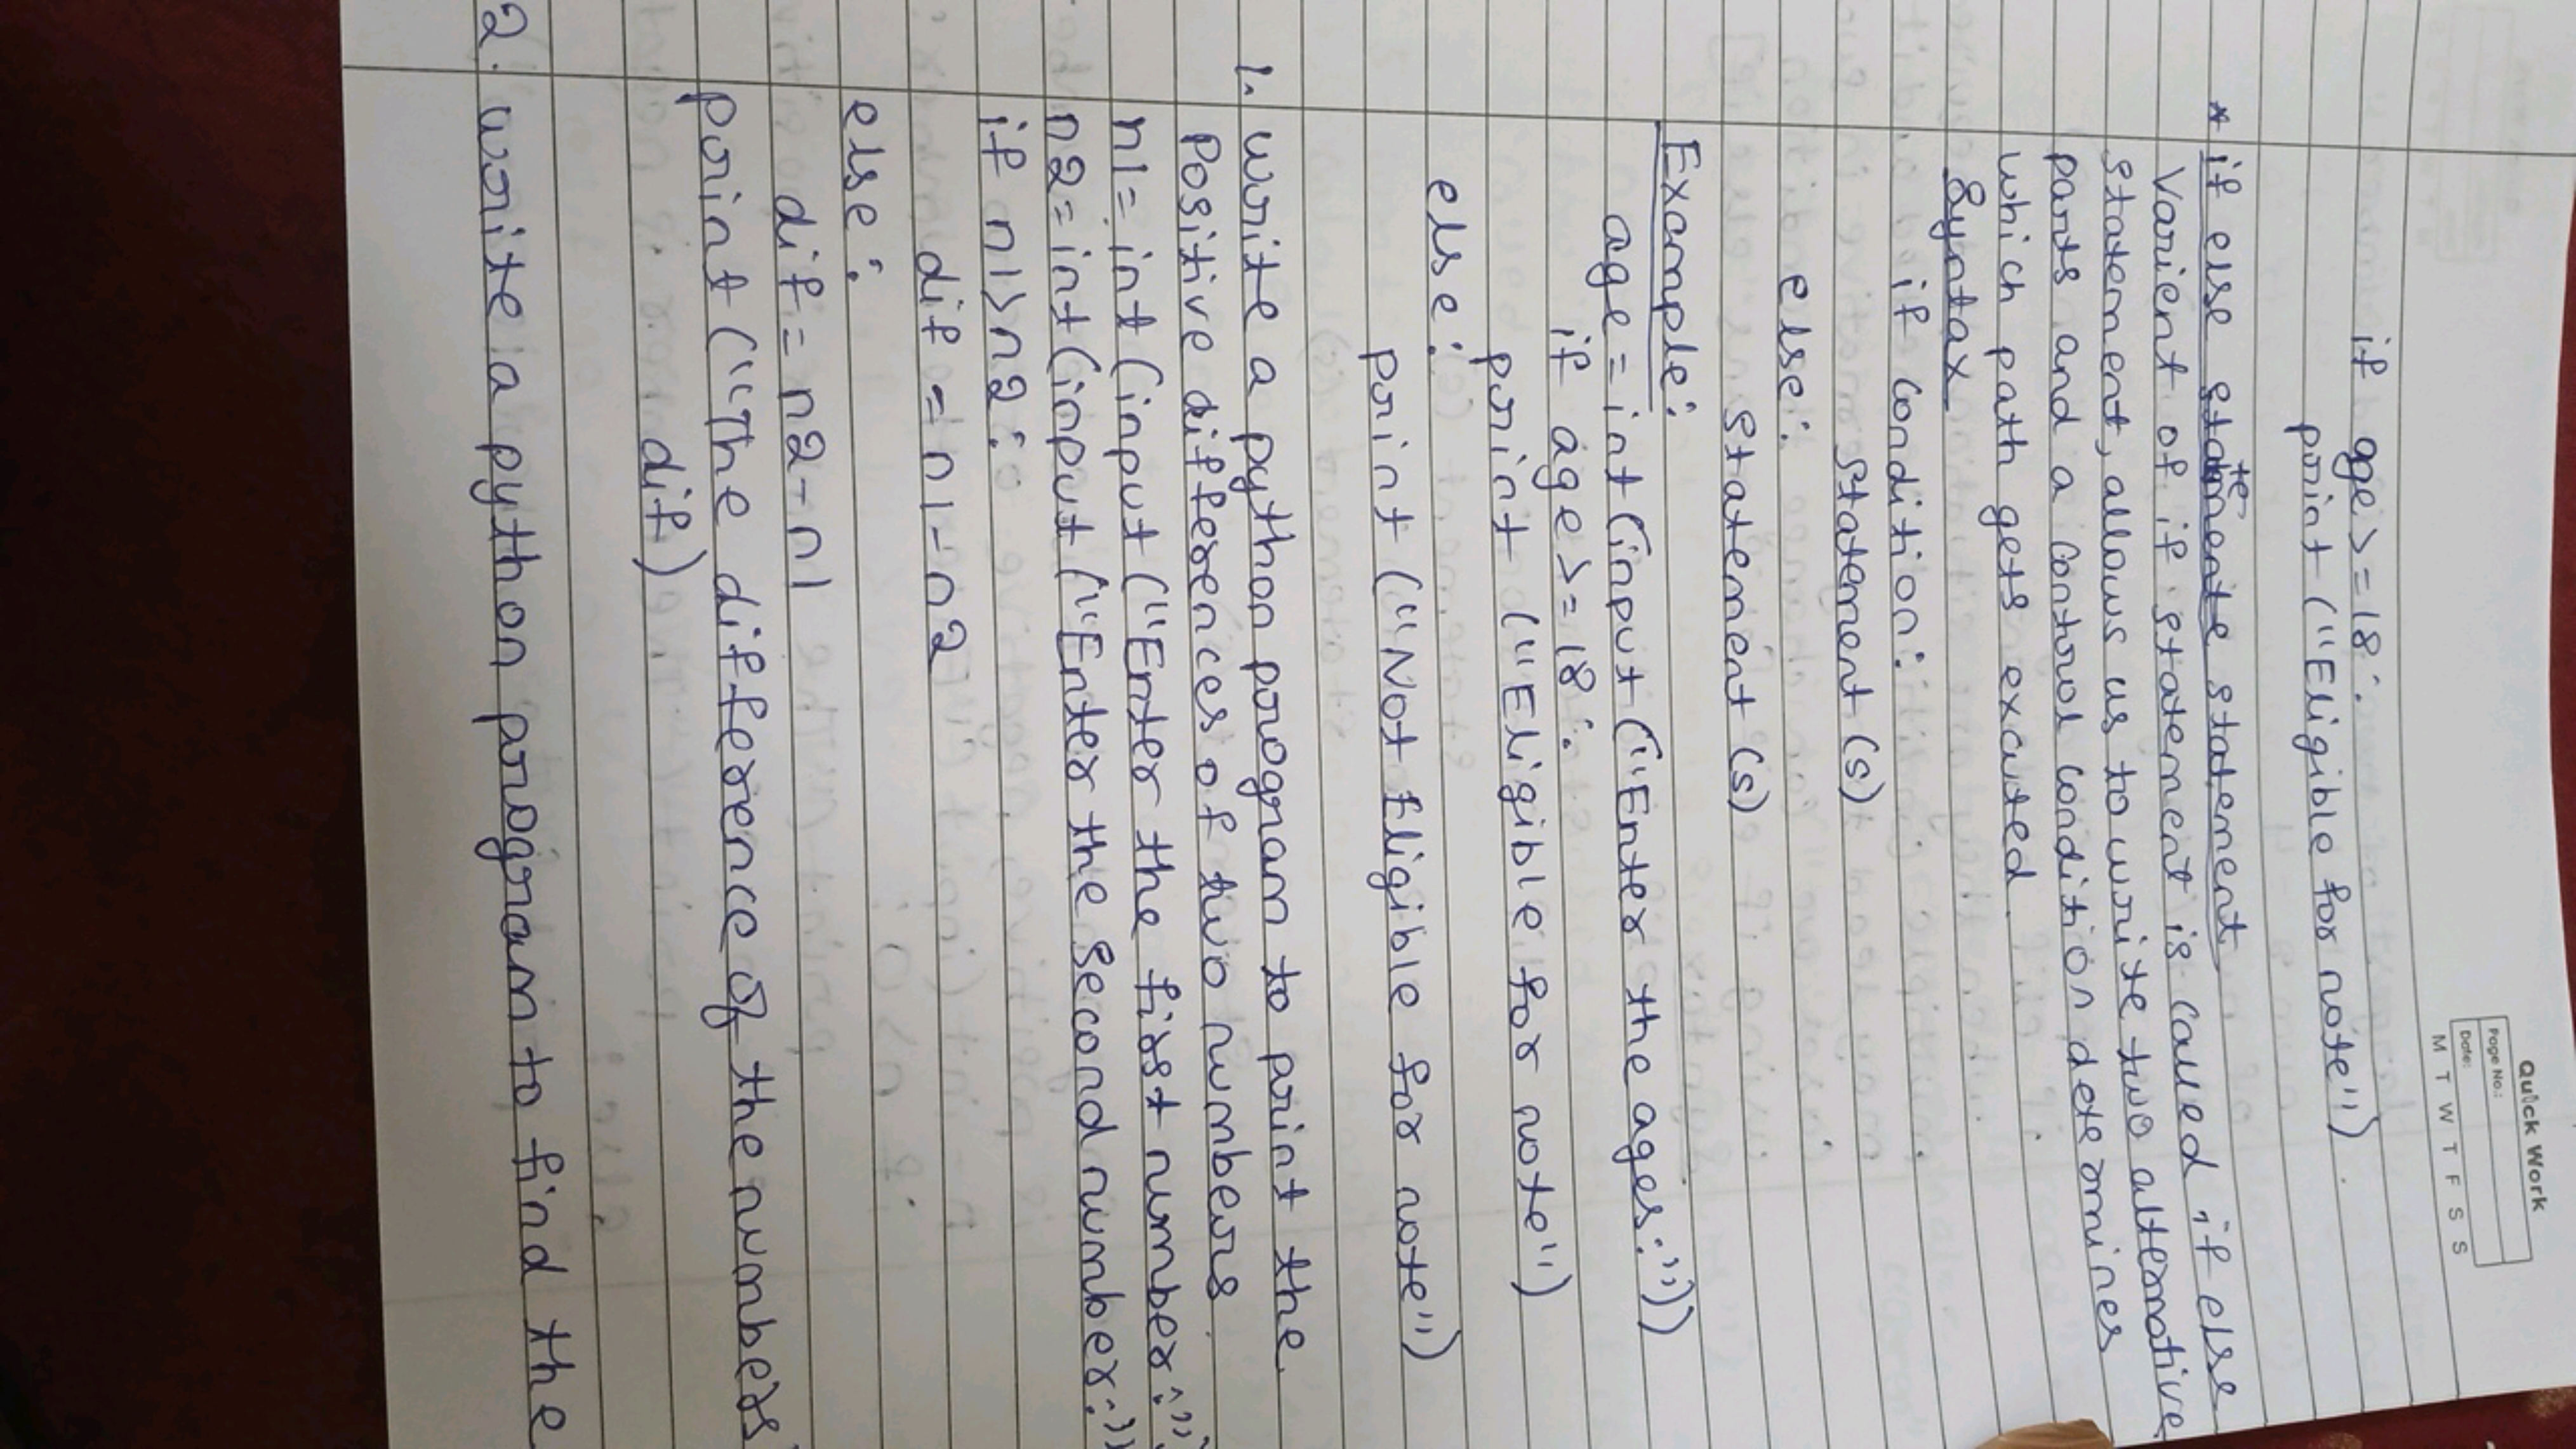 Quick Work
Page No.:
Date:
M T W T F S S
if age >= 18:
print ("Eligible for note").
* if else statement
Varient of if statement is called if else
statement, allows us to write two alternative
parts and a control condition determines
which path gets excuted.
Syntax
if condition:
statement (s)
else:
statement (s)
Example:
age = int (input ("Enter the ages:"))
if age >= 18:
print ("Eligible for note")
else:
print ("Not Eligible for note")
1. write a python program to print the
Positive differences of two numbers
n1 = int (input ("Enter the first number:"
n2 = int (input ("Enter the second number:")
if n1>n2:
dif = n1-n2
else:
dif = n2-n1
print ("The difference of the numbers
dif)
2. write a python program to find the